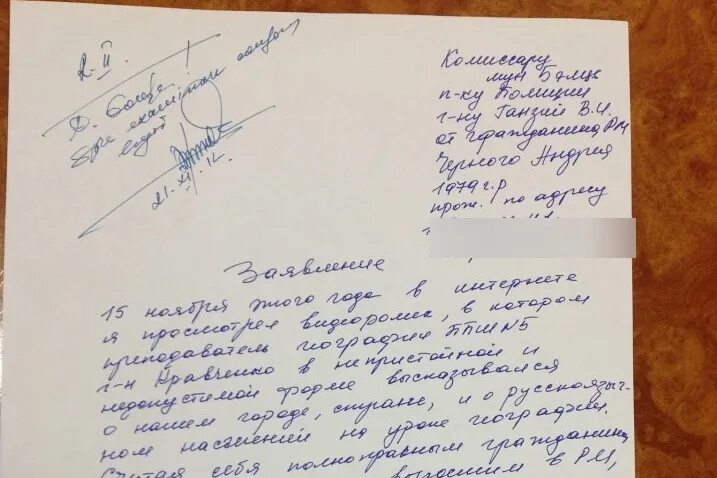 2-II.
D.
spre examinare conform
legii
21.XI.12.
Комиссару
мун Бэлць
п-ку Полиции
г-ну Ганзий В.И.
от гражданина РМ
Черного Андрея
1979 г.р
прож. по адресу
Заявление
15 ноября этого года в интернете
я просмотрел видеоролик, в котором
преподаватель географии ППШ №5
г-н Кравченко в непристойной и
недопустимой форме высказывался
о нашем городе, стране, и о русскоязыч-
ном населений на уроке географии.
Считая себя полноправным гражданином
выросшим в РМ,